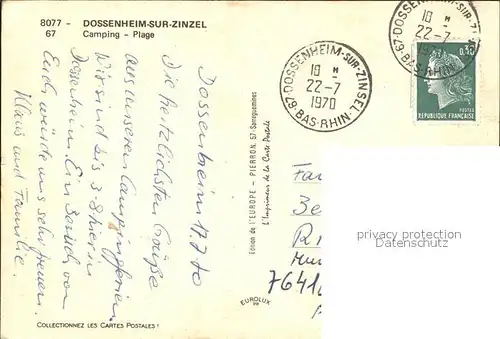 8077 - DOSSENHEIM-SUR-ZINZEL
67 Camping - Plage
Dossenheim 17.7.70
Die herzlichsten Grüße
aus unseren Campingferien.
Wir sind bis 3.8 hier in
Dossenheim. Ein Besuch von
Euch würde uns sehr freuen.
Klaus und Familie.
COLLECTIONNEZ LES CARTES POSTALES !
Edition de L'EUROPE - PIERRON, 57-Sarreguemines
L'Imprimeur de la Carte Postale
EUROLUX
67-DOSSENHEIM-SUR-ZINSEL
18 H
22-7
1970
BAS-RHIN
67-DOSSENHEIM-SUR-
18 H
22-7
BAS-RHIN
0,30
POSTES
REPUBLIQUE FRANÇAISE
Fa
Be
7641
privacy protection
Datenschutz